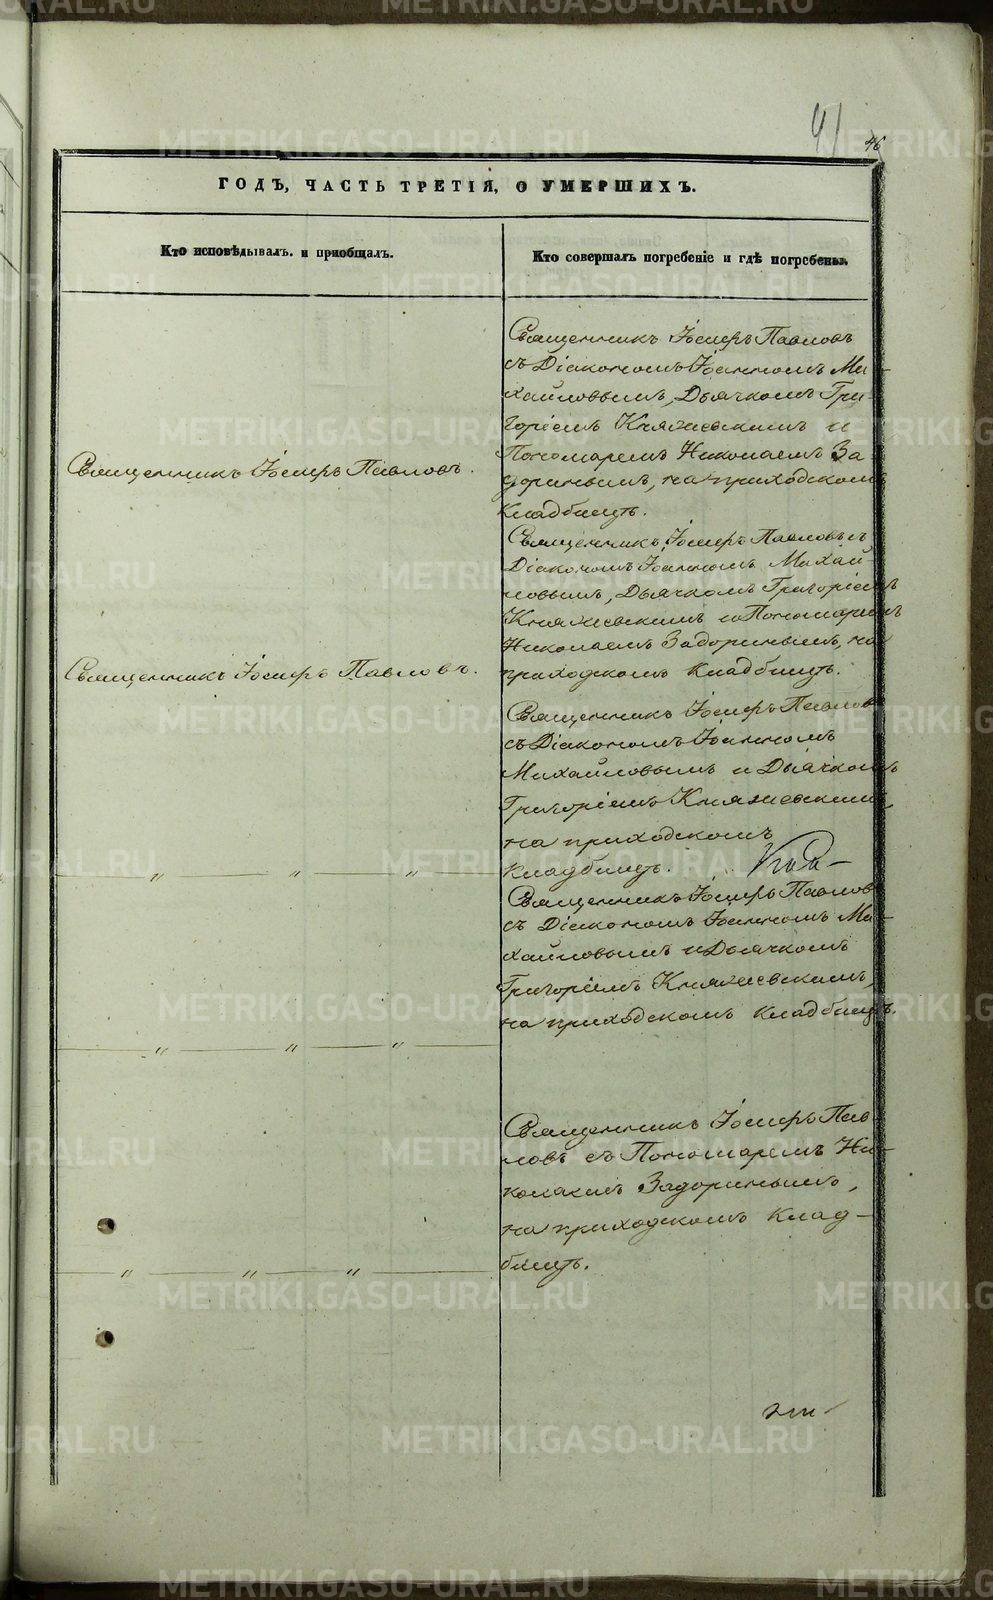 41
46
ГОДЪ, ЧАСТЬ ТРЕТІЯ, О УМЕРШИХЪ.
Кто исповѣдывалъ. и приобщалъ.
Кто совершалъ погребеніе и гдѣ погребены.
Священникъ Іосифъ Павловъ
съ Діакономъ Іоанномъ Ми-
хайловымъ, Дьячкомъ Гри-
горіемъ Княжевскимъ и
Пономаремъ Николаемъ За-
доринымъ, на приходскомъ
кладбищѣ.
Священникъ Іосифъ Павловъ.
Священникъ Іосифъ Павловъ съ
Діакономъ Іоанномъ Михай-
ловымъ, Дьячкомъ Григоріемъ
Княжевскимъ и Пономаремъ
Николаемъ Задоринымъ, на
приходскомъ кладбищѣ.
Священникъ Іосифъ Павловъ.
Священникъ Іосифъ Павловъ
съ Діакономъ Іоанномъ
Михайловымъ и Дьячкомъ
Григоріемъ Княжевскимъ,
на приходскомъ
кладбищѣ.
— " — " — " —
Священникъ Іосифъ Павловъ
съ Діакономъ Іоанномъ Ми-
хайловымъ и Дьячкомъ
Григоріемъ Княжевскимъ,
на приходскомъ кладбищѣ.
— " — " — " —
Священникъ Іосифъ Пав-
ловъ съ Пономаремъ Ни-
колаемъ Задоринымъ,
на приходскомъ клад-
бищѣ.
— " — " — " —
METRIKI.GASO-URAL.RU